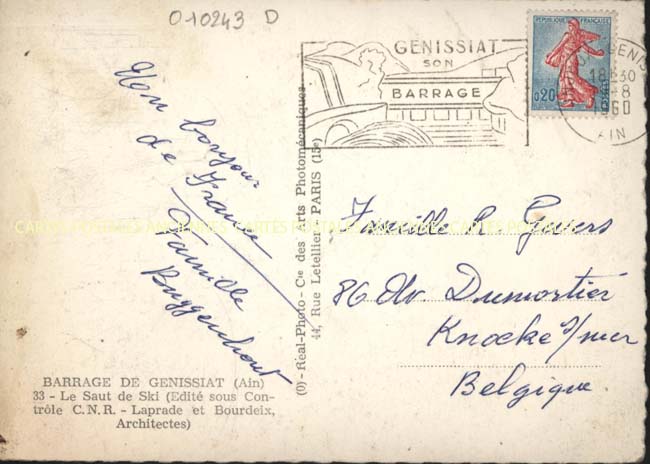 010243 D
GENISSIAT
SON
BARRAGE
REPUBLIQUE FRANÇAISE
0,20
POSTES
GENISSIAT
18H30
-8
1960
AIN
bonjour
de France
Famille
Buggenhout
(O) - Réal-Photo - Cie des Arts Photomécaniques
44, Rue Letellier - PARIS (15e)
Famille R.
86 Av Dumortier
Knocke s/mer
Belgique
CARTES POSTALES ANCIENNES CARTES POSTALES ANCIENNES CARTES POSTALES
BARRAGE DE GENISSIAT (Ain)
33 - Le Saut de Ski (Edité sous Con-
trôle C.N.R. - Laprade et Bourdeix,
Architectes)